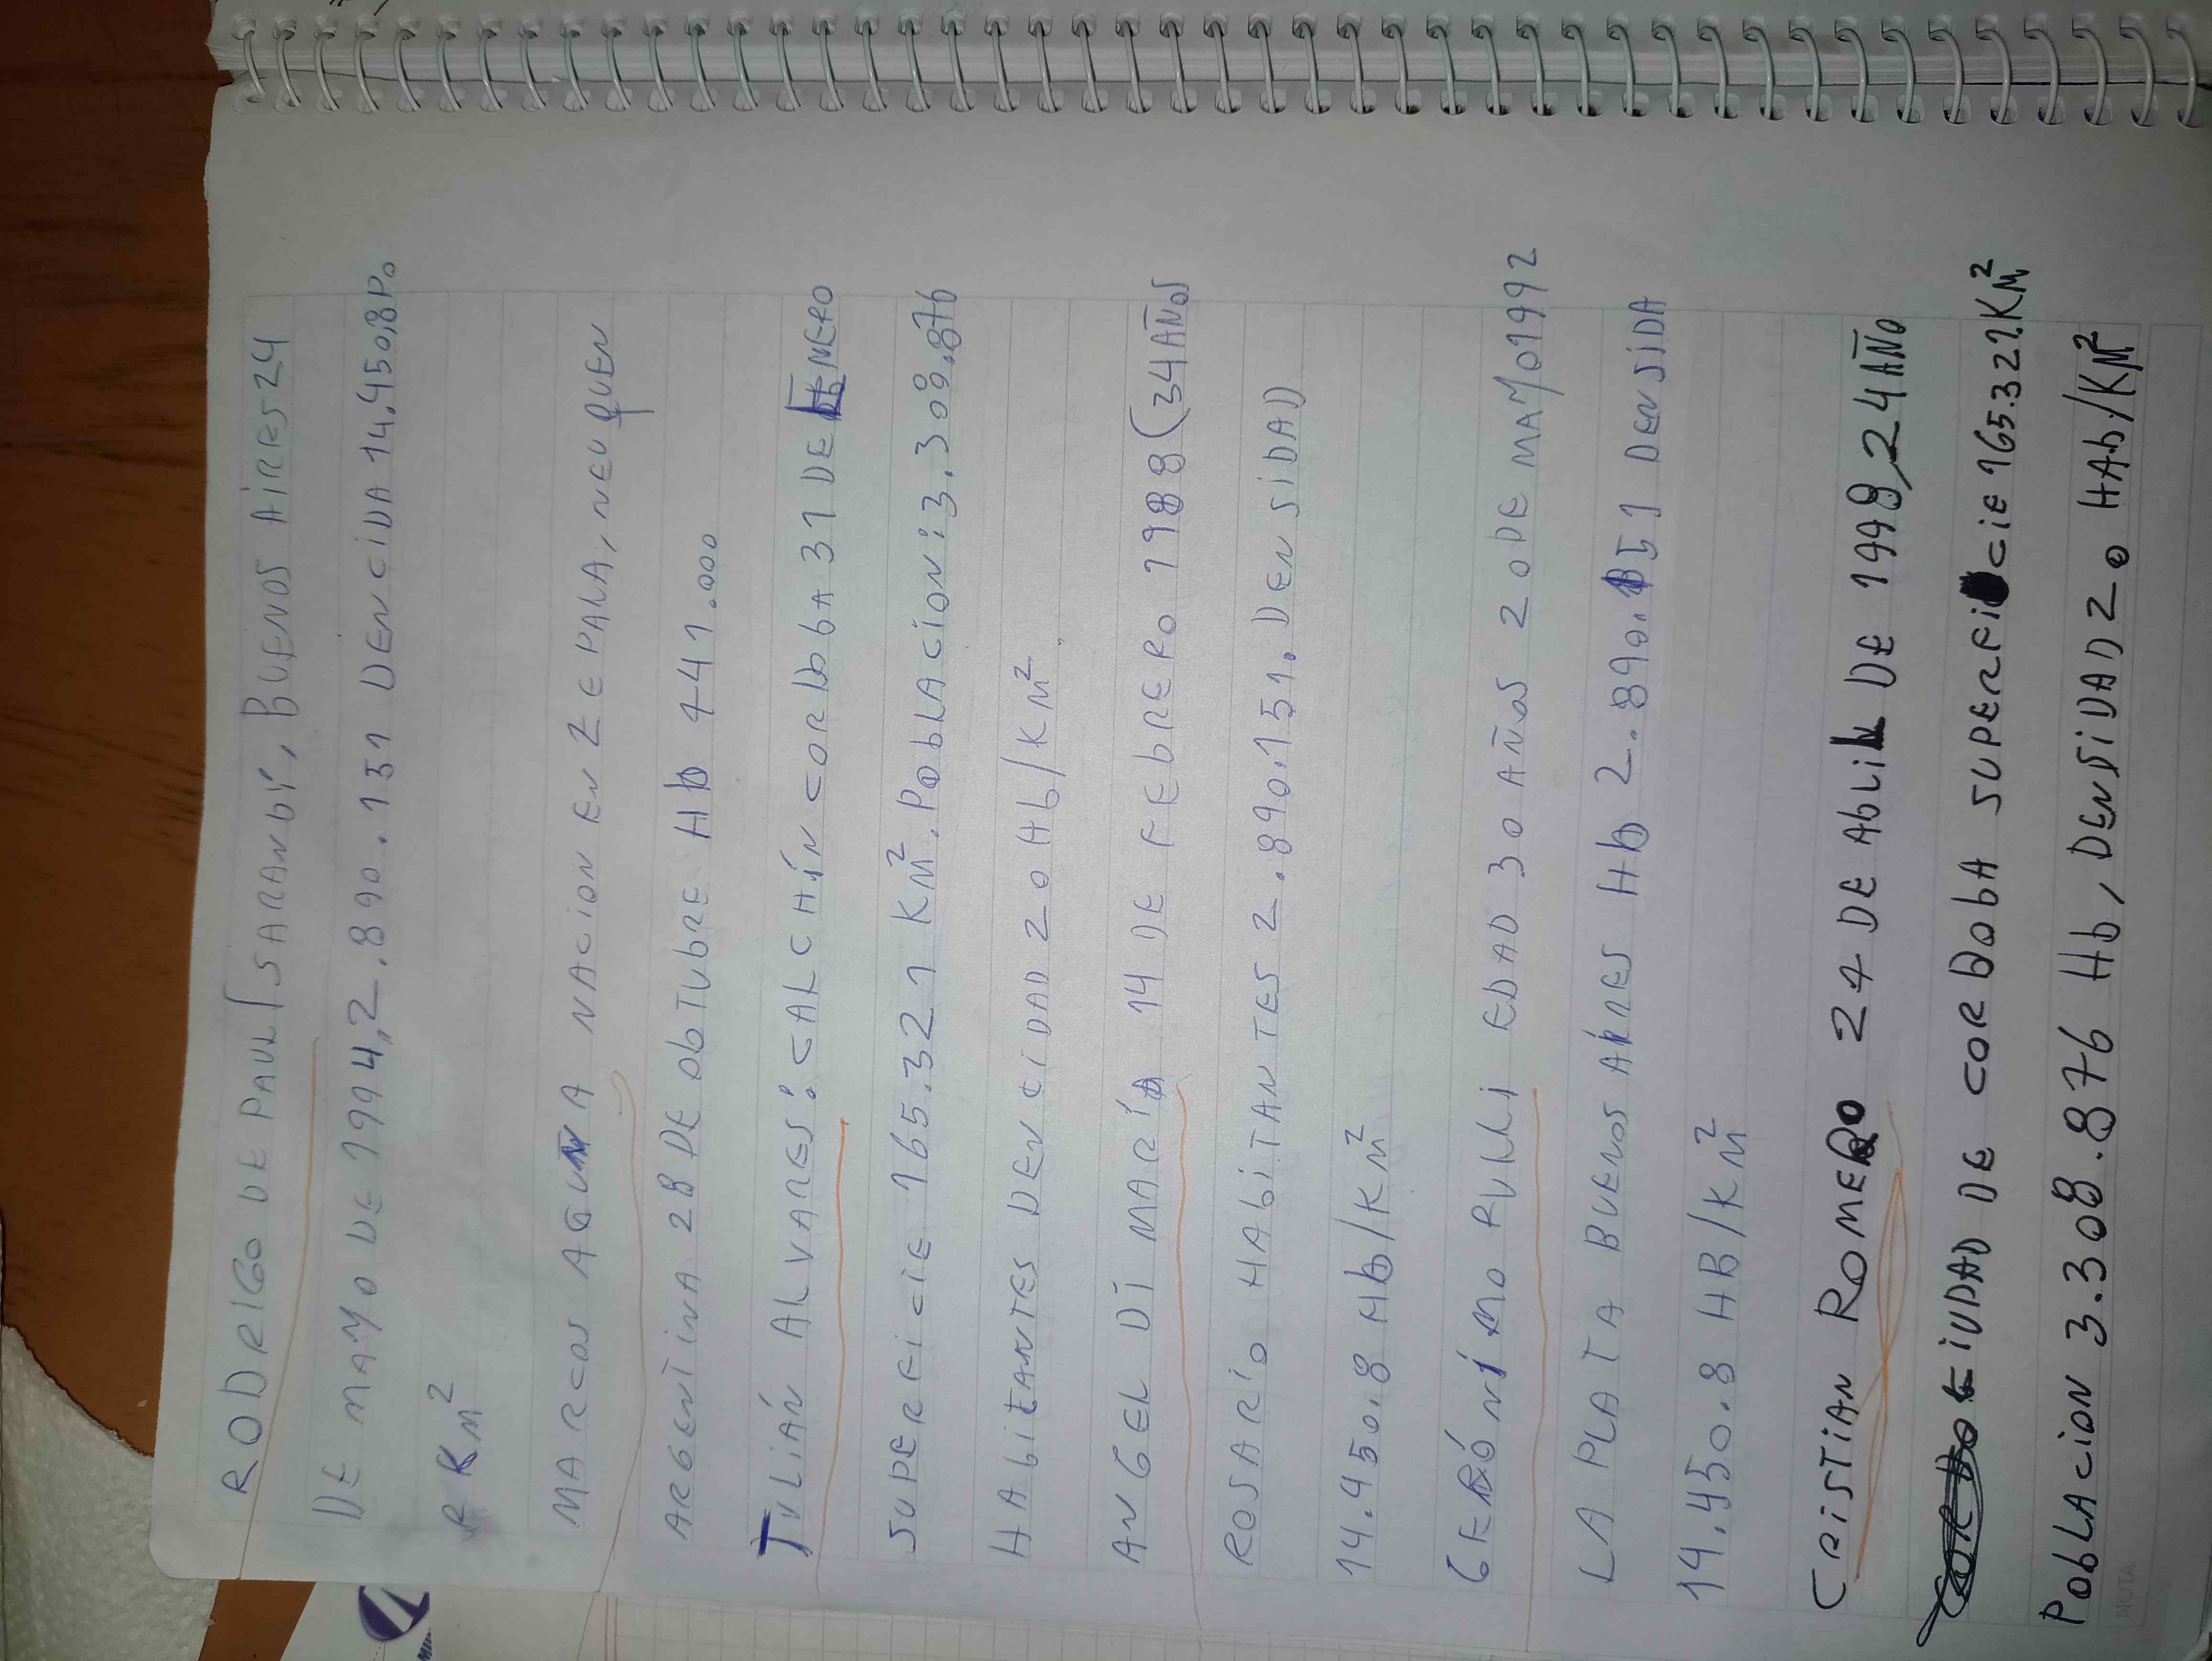 RODRIGO DE PAUL SARANDÍ, BUENOS AIRES 24
DE MAYO DE 1994, 2.890.151 DENCIDA 14.450,8 Po
R KM²
MARCOS ACUÑA NACION EN ZEPALA, NEUQUEN
ARGENTINA 28 DE OBTUBRE Hb 441.000
JULIÁN ALVARES: CALCHÍN CORDbA 31 DE ENERO
SUPERFICIE 165.321 KM². PobLACION: 3.308.876
HAbitANTES DENCIDAD 20 Hb/KM²
ANGEL DI MARÍA 14 DE FEBRERO 1988 (34 AÑOS
ROSARIO HABITANTES 2.890.151. DENSIDAD
14.450.8 Hb/KM²
GERÓNIMO RULLI EDAD 30 AÑOS 20 DE MAYO 1992
LA PLATA BUENOS AIRES Hb 2.890.151 DENSIDA
14.450.8 HB/KM²
CRISTIAN ROMERO 24 DE AbLIL DE 1998, 24 AÑO
CIUDAD DE CORDObA SUPERFICIE 165.321 KM²
PobLACION 3.308.876 Hb, DENSIDAD 20 HAb/KM²
NOTA